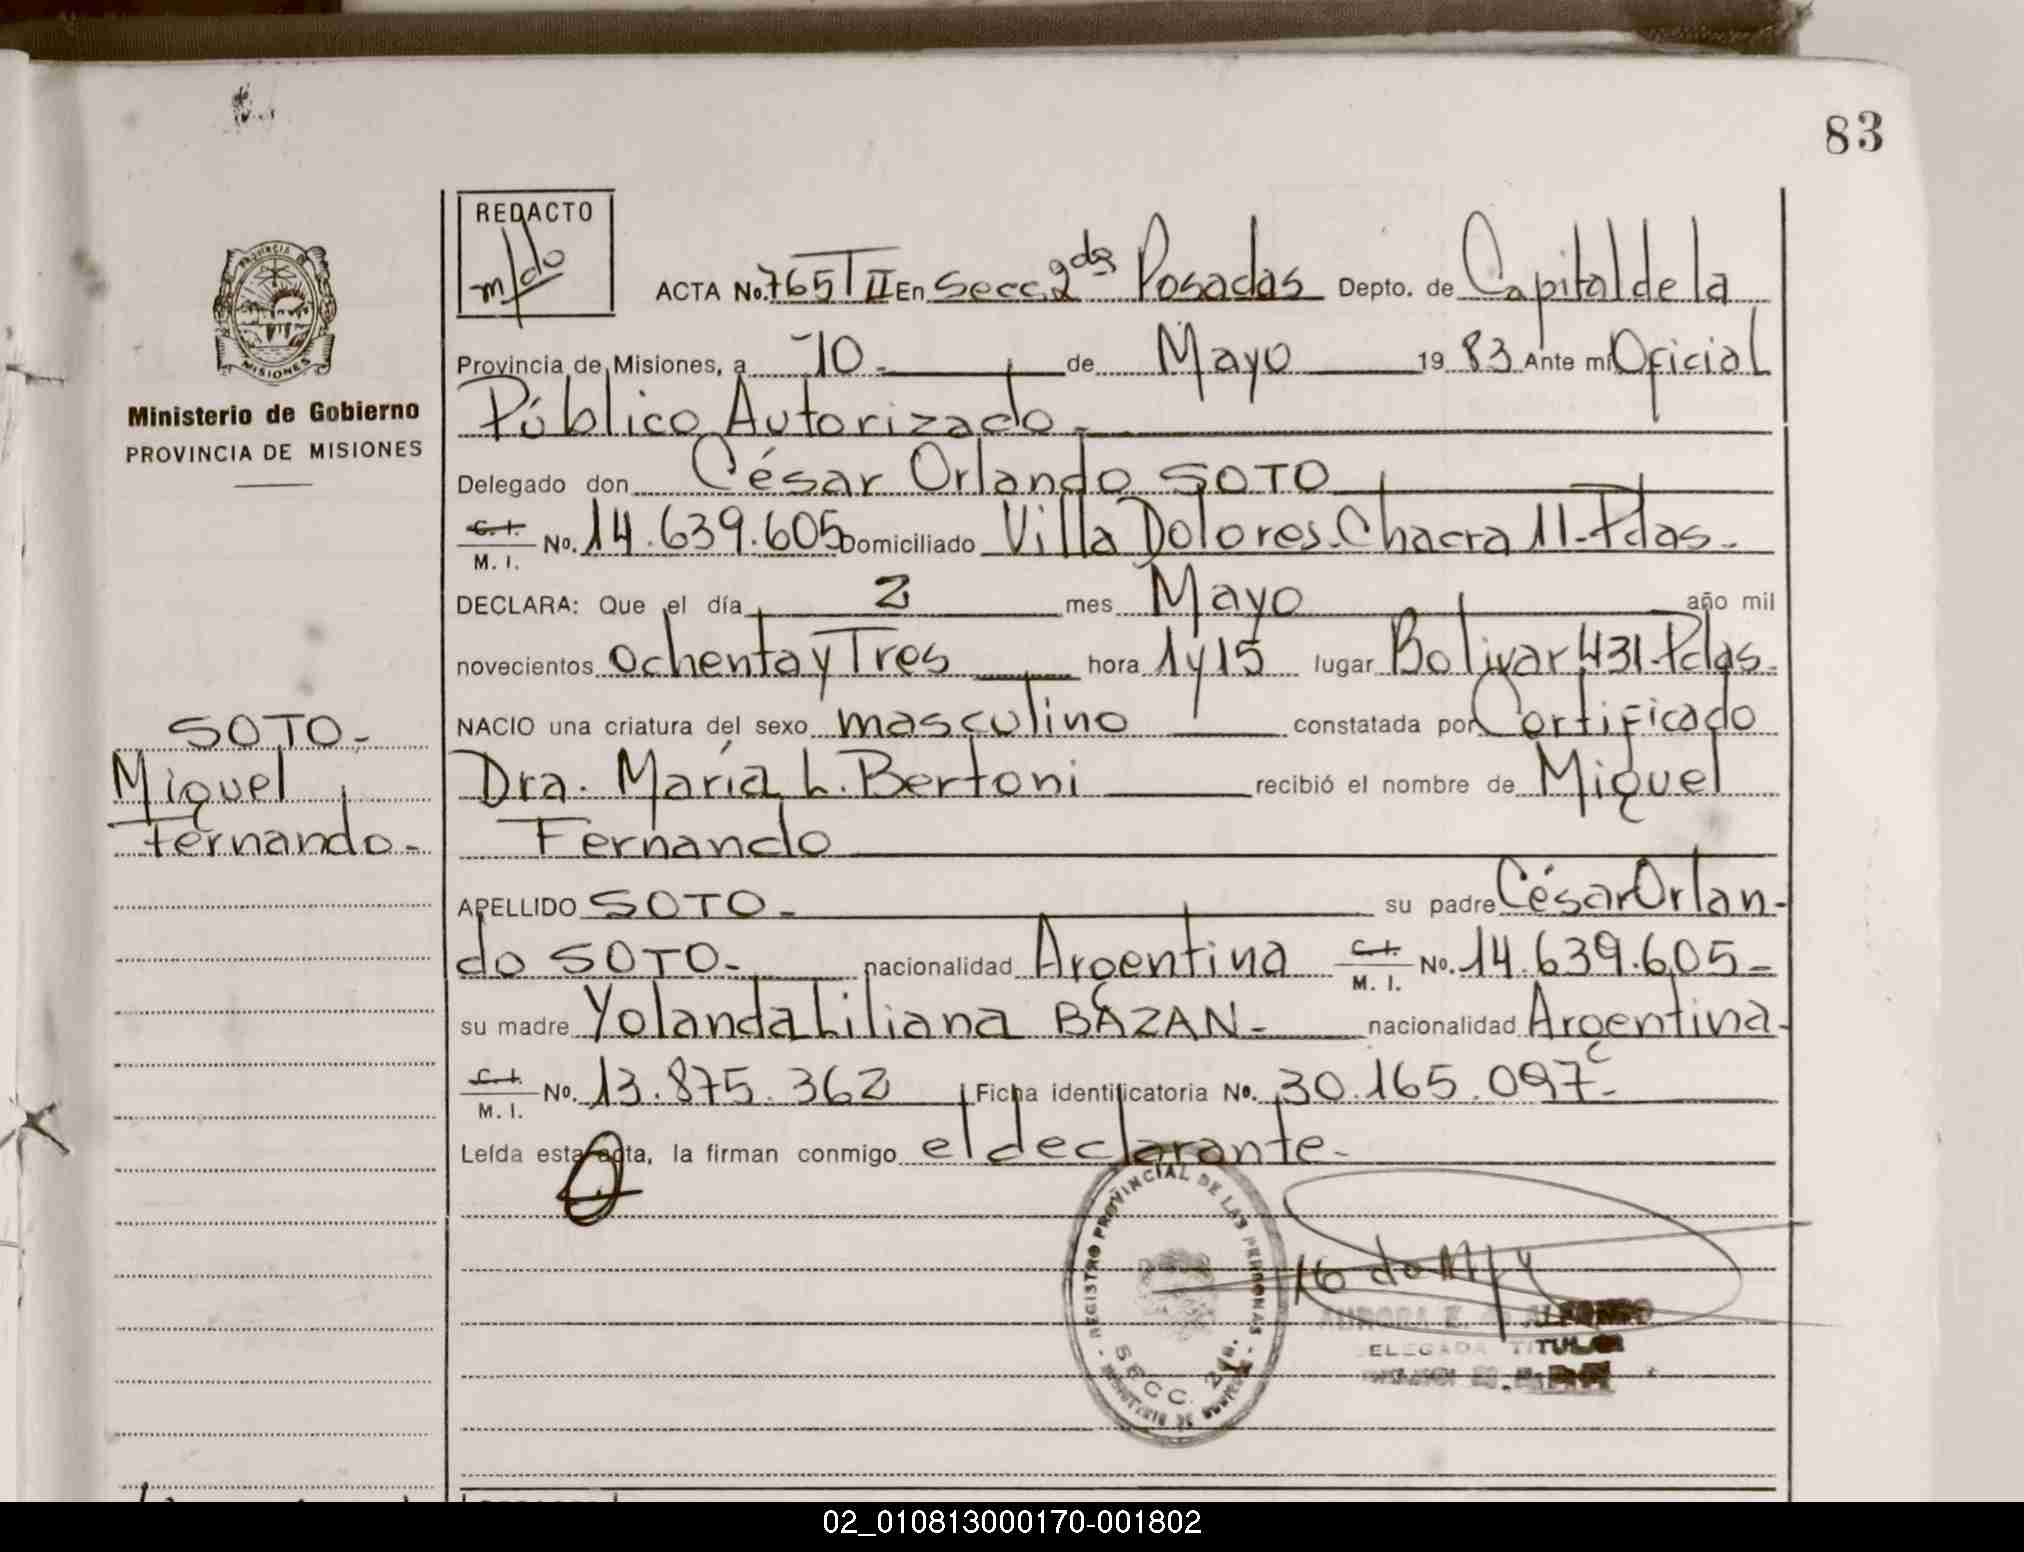 83
REDACTO
ACTA No. 765 T II En Secc. 2da Posadas Depto. de Capital de la
Provincia de Misiones, a 10 - de Mayo 19 83 Ante mí Oficial
Público Autorizado -
Delegado don César Orlando SOTO
C.I. M. I. No. 14.639.605 Domiciliado Villa Dolores. Chacra 11-Pdas.-
DECLARA: Que el día 2 mes Mayo año mil
novecientos ochenta y Tres hora 1 y 15 lugar Bolivar 431-Pdas.
NACIO una criatura del sexo masculino constatada por Certificado
Dra. María L. Bertoni recibió el nombre de Miguel
Fernando
APELLIDO SOTO - su padre César Orlan-
do SOTO - nacionalidad Argentina C.I. M. I. No. 14.639.605 -
su madre Yolanda Liliana BAZAN - nacionalidad Argentina -
C.I. M. I. No. 13.875.362 Ficha identificatoria No. 30.165.097 -
Leída esta acta, la firman conmigo el declarante -
PROVINCIA DE
MISIONES
Ministerio de Gobierno
PROVINCIA DE MISIONES
SOTO -
Miguel
Fernando -
REGISTRO PROVINCIAL DE LAS PERSONAS
SECC. 2da.
AURORA E.
DELEGADA TITULAR
02_010813000170-001802